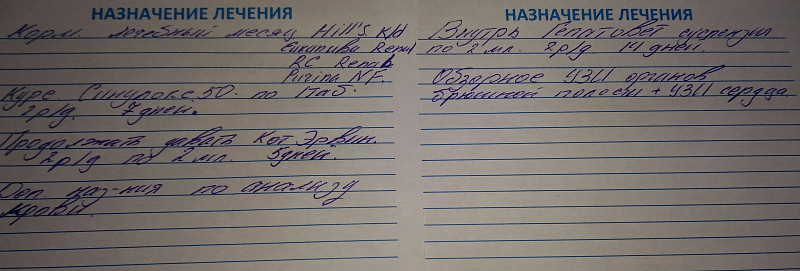 НАЗНАЧЕНИЕ ЛЕЧЕНИЯ
Корм. лечебный месяц Hill's K/d
Renal
RC Renal
Purina NF.
Курс Синулокс 50. по 1таб.
2р/д. 7дней.
Продолжать давать Кот Эрвин.
2р/д по 2мл. 5дней.
Доп. наз-ния по анализу
крови.
НАЗНАЧЕНИЕ ЛЕЧЕНИЯ
Внутрь Гепатовет суспензия
по 2 мл. 2р/д. 14 дней.
Обзорное УЗИ органов
брюшной полости + УЗИ сердца